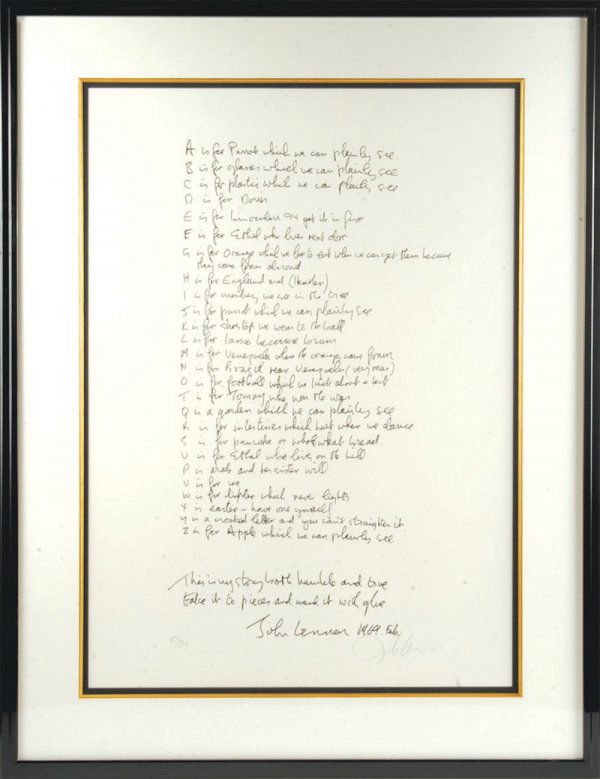 A is for Parrot which we can plainly see
B is for glasses which we can plainly see
C is for plastic which we can plainly see
D is for Doris
E is for binoculars I'll get it in five
F is for Ethel who lives next door
G is for Orange which we love to eat when we can get them because
they come from abroad
H is for England and (Heather)
I is for monkey we see in the tree
J is for parrot which we can plainly see
K is for shoetop we wear to the ball
L is for Land because brown
M is for Venezuela where the oranges come from
N is for Brazil near Venezuela (very near)
O is for football which we kick about a bit
T is for Tommy who won the war
Q is a garden which we can plainly see
R is for intestines which hurt when we dance
S is for pancake or whole wheat bread
U is for Ethel who lives on the hill
P is arab and her sister will
V is for me
W is for lighter which never lights
X is easter - have one yourself
Y is a crooked letter and you can't straighten it
Z is for Apple which we can plainly see
This is my story both humble and true
take it to pieces and mend it with glue
John Lennon 1969. Feb.
John Lennon